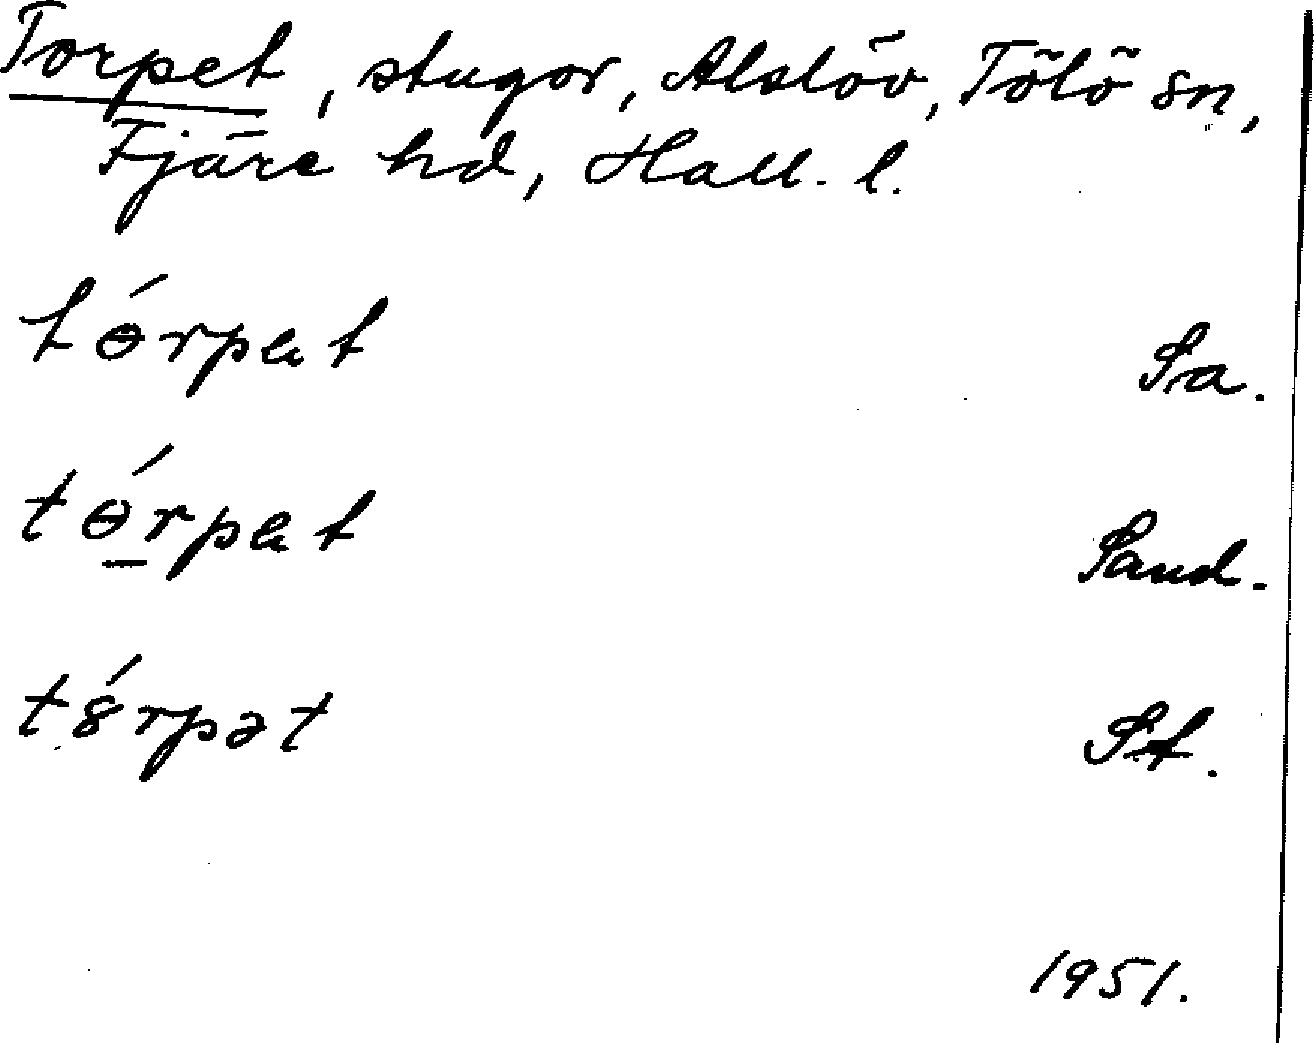 Torpet, stugor, Alslöv, Tölö sn,
Fjäre hd, Hall. l.
tɵ́rpet Sa.
tɵ́rpet Sand.
tṓrpət St.
1951.